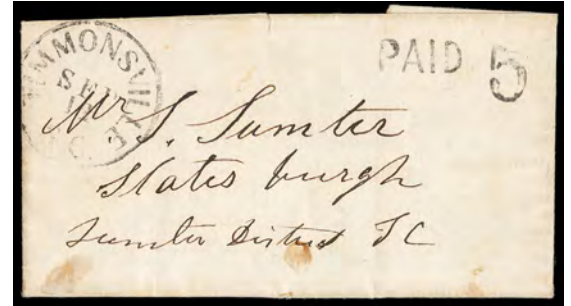 MMONSVILLE
SEP
PAID 5
Mr S. Sumter
States burgh
Sumter District SC